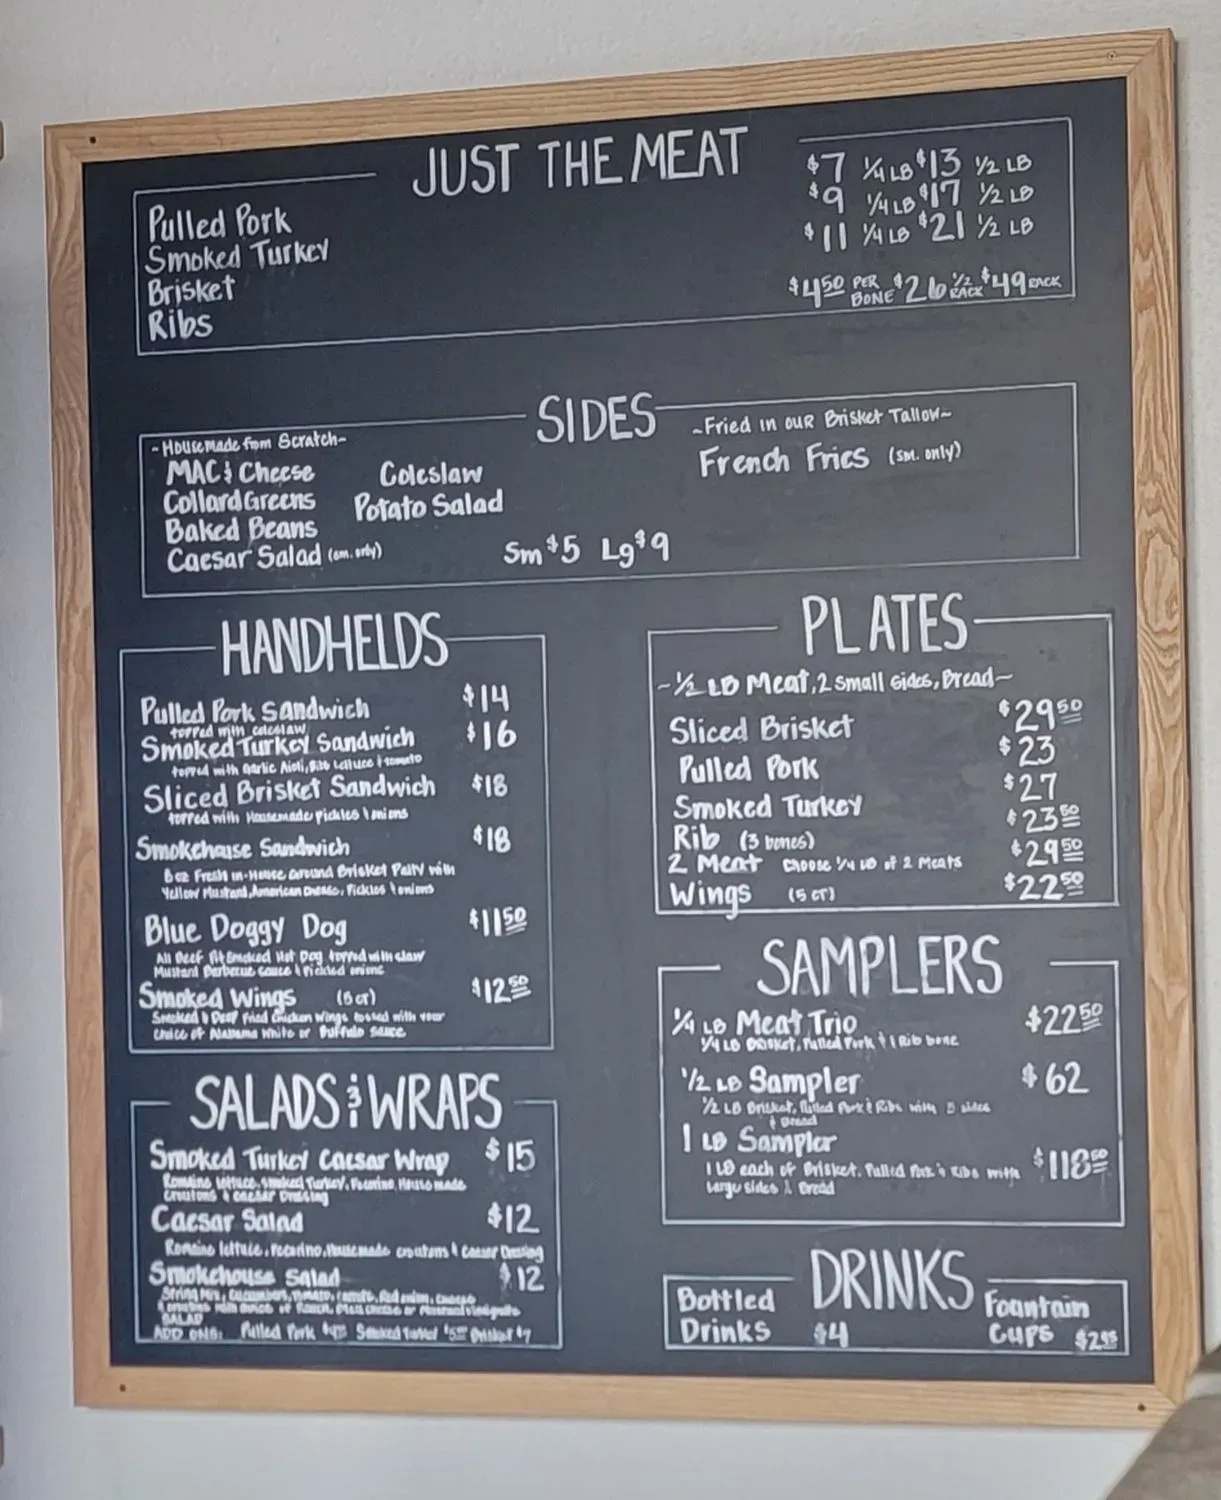 JUST THE MEAT
Pulled Pork $7 1/4 LB $13 1/2 LB
Smoked Turkey $9 1/4 LB $17 1/2 LB
Brisket $11 1/4 LB $21 1/2 LB
Ribs $4.50 PER BONE $26 1/2 RACK $49 RACK
SIDES
~House Made from Scratch~
MAC & Cheese Coleslaw
Collard Greens Potato Salad
Baked Beans
Caesar Salad (sm. only)
~Fried in our Brisket Tallow~
French Fries (sm. only)
Sm $5 Lg $9
HANDHELDS
Pulled Pork Sandwich $14
topped with coleslaw
Smoked Turkey Sandwich $16
topped with Garlic Aioli, Bibb Lettuce & tomato
Sliced Brisket Sandwich $18
topped with Housemade Pickles & onions
Smokehouse Sandwich $18
8 oz Fresh in-House Ground Brisket Patty with
Yellow Mustard, American cheese, Pickles & onions
Blue Doggy Dog $11.50
All Beef Pit Smoked Hot Dog topped with slaw
Mustard Barbecue sauce & Pickled onions
Smoked Wings (5 ct) $12.50
Smoked & Deep Fried Chicken Wings tossed with your
choice of Alabama White or Buffalo sauce
SALADS & WRAPS
Smoked Turkey Caesar Wrap $15
Romaine lettuce, smoked Turkey, Pecorino, House made
croutons & caesar Dressing
Caesar Salad $12
Romaine lettuce, Pecorino, Housemade croutons & Caesar Dressing
Smokehouse Salad $12
Spring Mix, cucumbers, tomato, carrots, Red onion, cheese
croutons with choice of Ranch, Bleu cheese or Mustard vinaigrette
SALAD
ADD ONS: Pulled Pork Smoked Turkey Brisket $7
PLATES
~1/2 LB Meat, 2 small sides, Bread~
Sliced Brisket $29.50
Pulled Pork $23
Smoked Turkey $27
Rib (3 bones) $23.50
2 Meat Choose 1/4 LB of 2 Meats $29.50
Wings (5 CT) $22.50
SAMPLERS
1/4 LB Meat Trio $22.50
1/4 LB Brisket, Pulled Pork & 1 Rib bone
1/2 LB Sampler $62
1/2 LB Brisket, Pulled Pork & Ribs with sides
& Bread
1 LB Sampler $118.50
1 LB each of Brisket, Pulled Pork & Ribs with
Large sides & Bread
DRINKS
Bottled Drinks $4
Fountain Cups $2.95